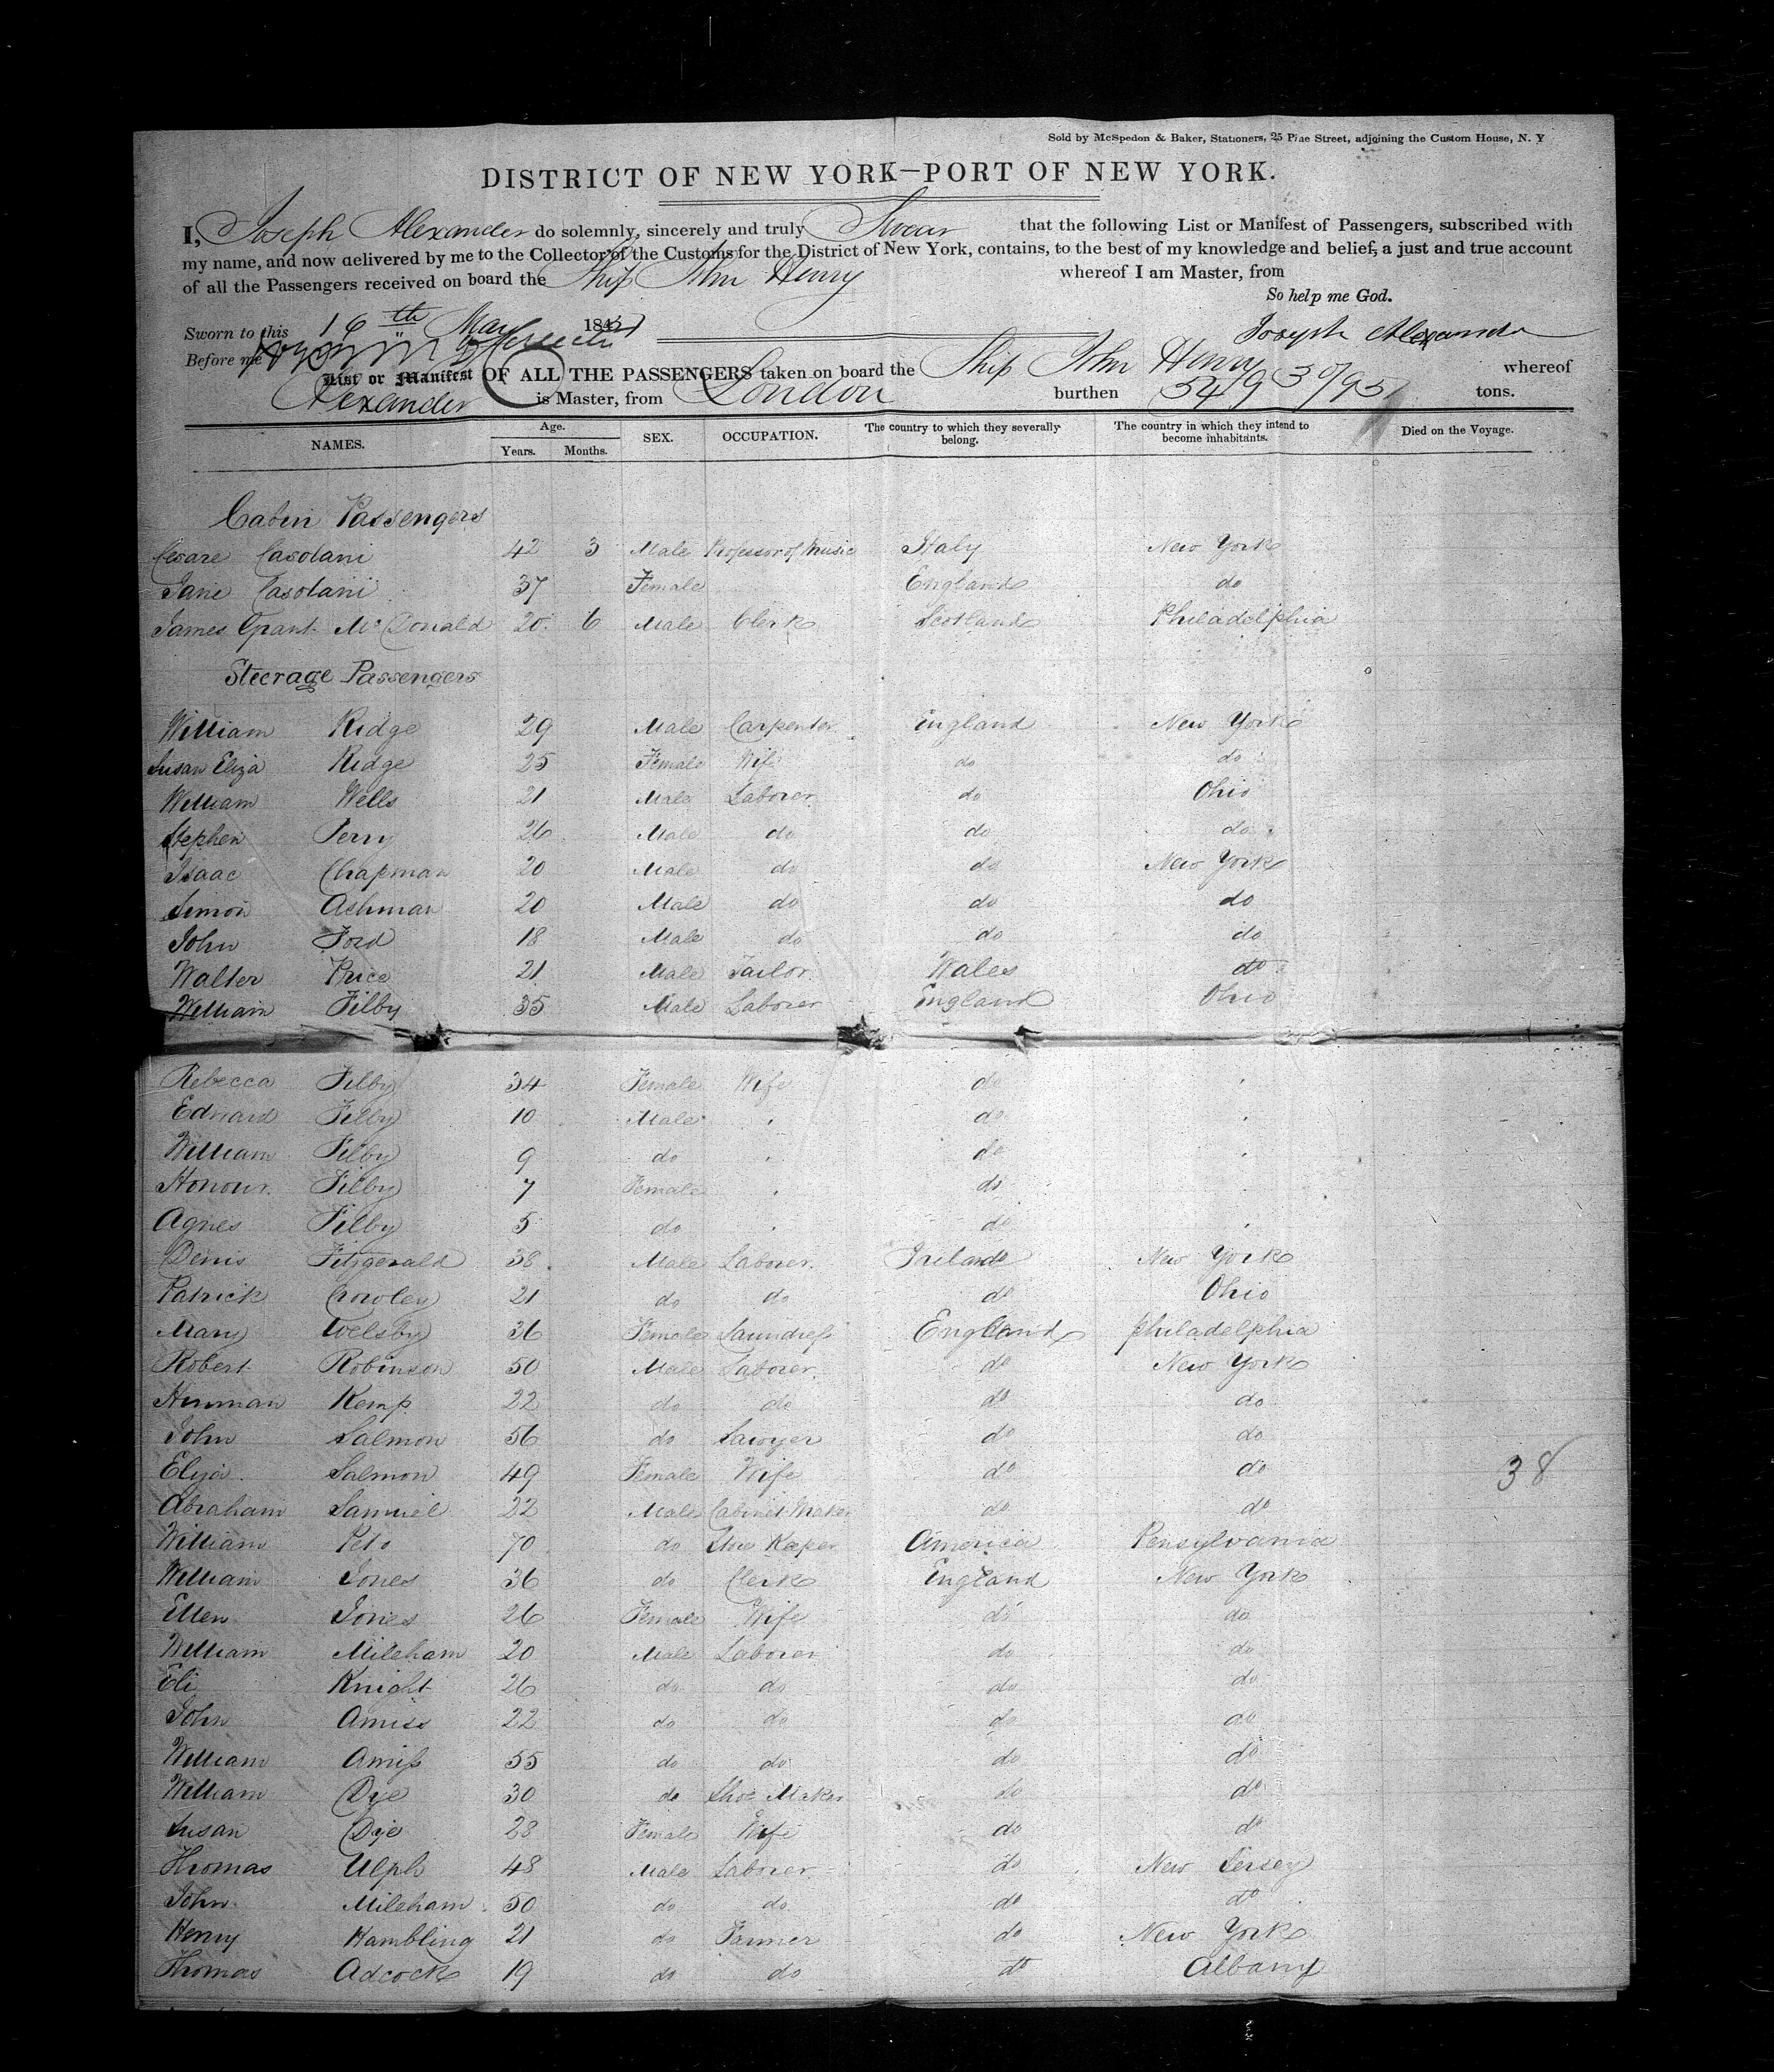 Sold by McSpedon & Baker, Stationers, 25 Pine Street, adjoining the Custom House, N. Y
DISTRICT OF NEW YORK—PORT OF NEW YORK.
I, Joseph Alexander do solemnly, sincerely and truly Swear that the following List or Manifest of Passengers, subscribed with
my name, and now delivered by me to the Collector of the Customs for the District of New York, contains, to the best of my knowledge and belief, a just and true account
of all the Passengers received on board the Ship John Henry whereof I am Master, from
So help me God.
Sworn to this 16th May 184
Joseph Alexander
Before me
List or Manifest OF ALL THE PASSENGERS taken on board the Ship John Henry whereof
Alexander is Master, from London burthen 549 30/95 tons.
NAMES. Age. Years. Months. SEX. OCCUPATION. The country to which they severally belong. The country in which they intend to become inhabitants. Died on the Voyage.
Cabin Passengers
Cesare Casolani 42 3 Male Professor of Music Italy New York
Jane Casolani 37 Female England do
James Grant McDonald 20 6 Male Clerk Scotland Philadelphia
Steerage Passengers
William Ridge 29 Male Carpenter England New York
Susan Eliza Ridge 25 Female Wife do do
William Wells 21 Male Laborer do Ohio
Stephen Perry 26 Male do do do
Isaac Chapman 20 Male do do New York
Simon Ashman 20 Male do do do
John Ford 18 Male do do do
Walter Price 21 Male Tailor Wales do
William Filby 35 Male Laborer England Ohio
Rebecca Filby 34 Female Wife do
Edward Filby 10 Male do
William Filby 9 do do
Honour Filby 7 Female do
Agnes Filby 5 do do
Denis Fitzgerald 38 Male Laborer Ireland New York
Patrick Crowley 21 do do do Ohio
Mary Welsby 36 Female Laundress England Philadelphia
Robert Robinson 50 Male Laborer do New York
Herman Kemp 22 do do do do
John Salmon 56 do Sawyer do do
Eliza Salmon 49 Female Wife do do 38
Abraham Samuel 22 Male Cabinet Maker do do
William Peto 70 do Store Keeper America Pensylvania
William Jones 36 do Clerk England New York
Ellen Jones 26 Female Wife do do
William Mileham 20 Male Laborer do do
Eli Knight 26 do do do do
John Amiss 22 do do do do
William Amiss 55 do do do do
William Dye 30 do Shoe Maker do do
Susan Dye 28 Female Wife do do
Thomas Ulph 48 Male Laborer do New Jersey
John Mileham 50 do do do do
Henry Hambling 21 do Farmer do New York
Thomas Adcock 19 do do do Albany